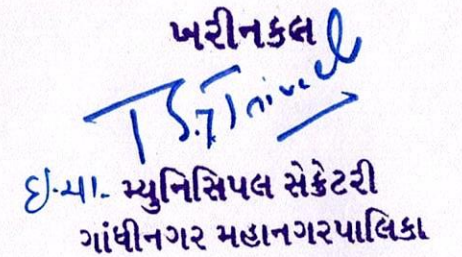 ખરીનકલ
ઇ.ચા. મ્યુનિસિપલ સેક્રેટરી
ગાંધીનગર મહાનગરપાલિકા